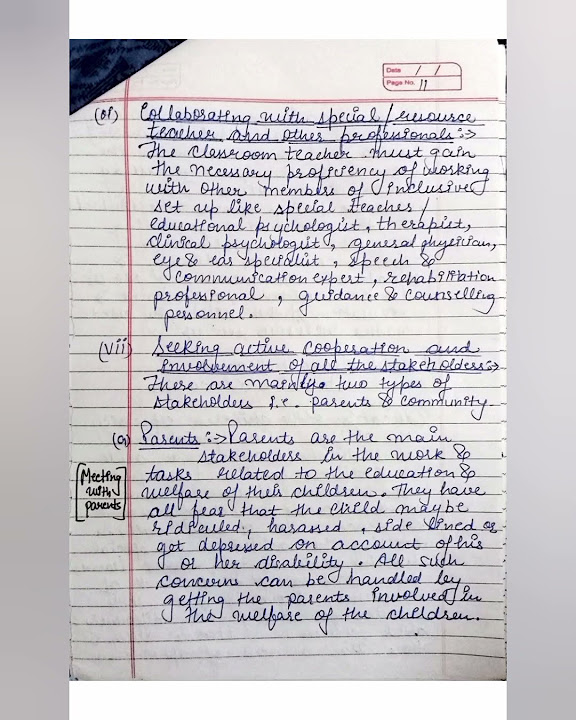 Date / /
Page No. 11
(vi) Collaborating with special / resource
teacher and other professionals :->
The classroom teacher must gain
the necessary proficiency of working
with other members of inclusive
set up like special teacher /
educational psychologist, therapist,
clinical psychologist, general physician,
eye & ear specialist, speech &
communication expert, rehabilitation
professional, guidance & counselling
personnel.
(vii) Seeking active cooperation and
involvement of all the stakeholders :->
There are mainly two types of
stakeholders i.e. parents & community
(a) Parents :-> Parents are the main
stakeholders in the work &
tasks related to the education &
welfare of their children. They have
all fear that the child maybe
ridiculed, harassed, side lined or
get depressed on account of his
or her disability. All such
concerns can be handled by
getting the parents involved in
the welfare of the children.
Meeting
with
parents